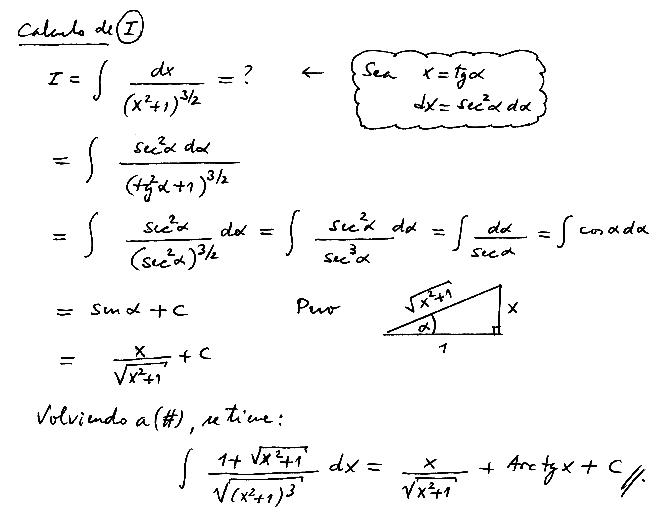 Calculo de I
I = ∫ dx / (x²+1)^3/2 = ? ← Sea x = tgα
dx = sec²α dα
= ∫ sec²α dα / (tg²α+1)^3/2
= ∫ sec²α / (sec²α)^3/2 dα = ∫ sec²α / sec³α dα = ∫ dα / secα = ∫ cosα dα
= senα + C Pero √x²+1 x α 1
= x / √x²+1 + C
Volviendo a (#), se tiene:
∫ 1+√x²+1 / √(x²+1)³ dx = x / √x²+1 + Arctgx + C //.